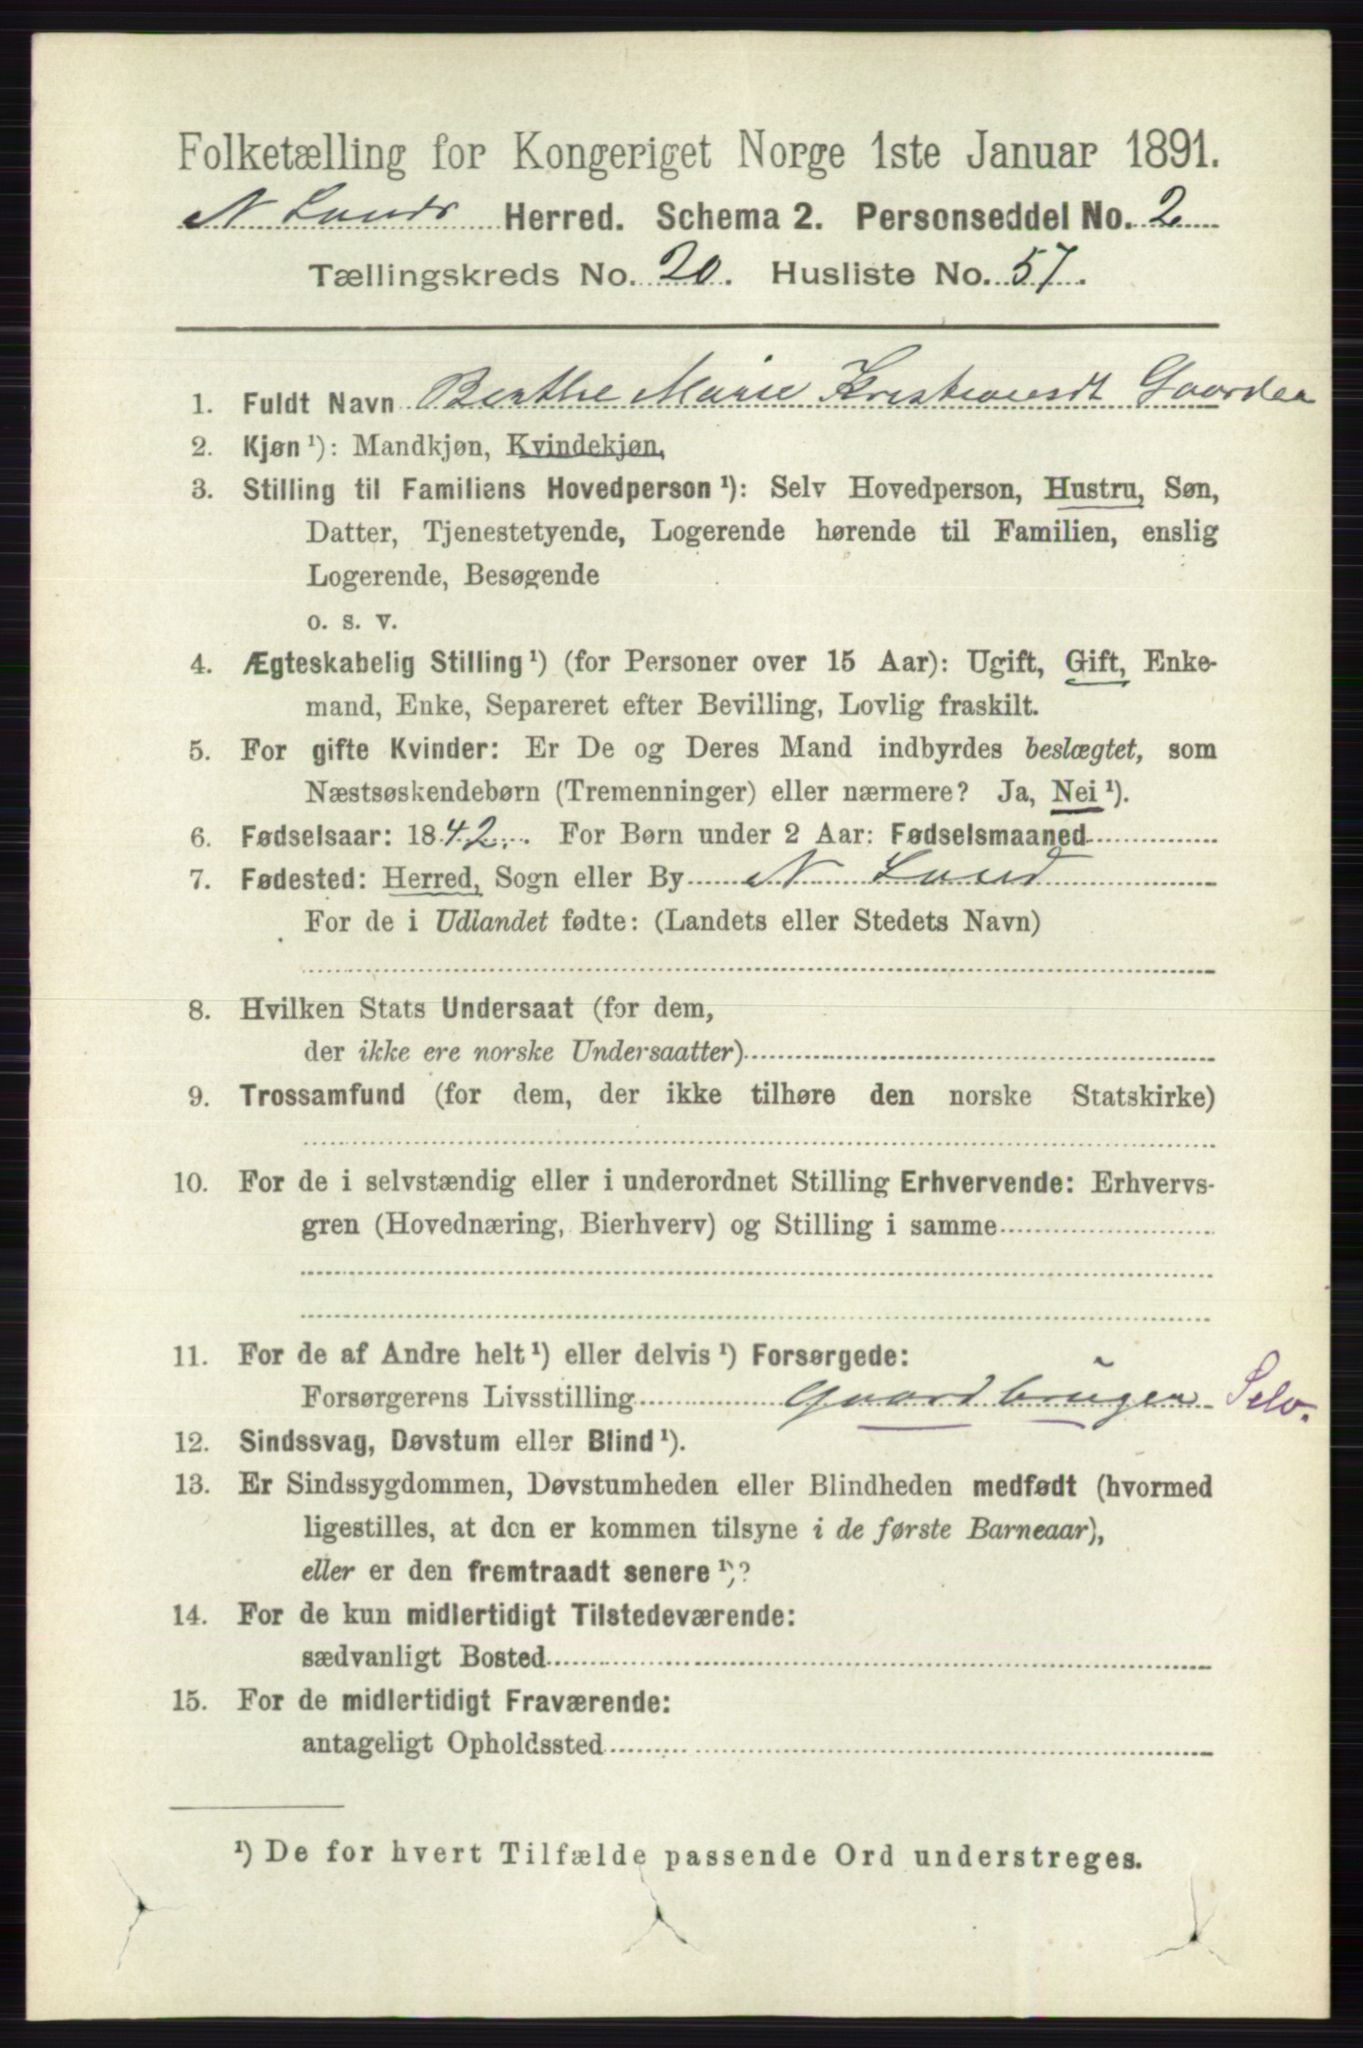 Folketælling for Kongeriget Norge 1ste Januar 1891.
N Lands Herred. Schema 2. Personseddel No. 2
Tællingskreds No. 20. Husliste No. 57.
1. Fuldt Navn Berthe Marie Kristiansdt Gaarden
2. Kjøn¹): Mandkjøn, Kvindekjøn,
3. Stilling til Familiens Hovedperson¹): Selv Hovedperson, Hustru, Søn,
Datter, Tjenestetyende, Logerende hørende til Familien, enslig
Logerende, Besøgende
o. s. v.
4. Ægteskabelig Stilling¹) (for Personer over 15 Aar): Ugift, Gift, Enke-
mand, Enke, Separeret efter Bevilling, Lovlig fraskilt.
5. For gifte Kvinder: Er De og Deres Mand indbyrdes beslægtet, som
Næstsøskendebørn (Tremenninger) eller nærmere? Ja, Nei¹).
6. Fødselsaar: 1842. For Børn under 2 Aar: Fødselsmaaned
7. Fødested: Herred, Sogn eller By N Land
For de i Udlandet fødte: (Landets eller Stedets Navn)
8. Hvilken Stats Undersaat (for dem,
der ikke ere norske Undersaatter)
9. Trossamfund (for dem, der ikke tilhøre den norske Statskirke)
10. For de i selvstændig eller i underordnet Stilling Erhvervende: Erhvervs-
gren (Hovednæring, Bierhverv) og Stilling i samme
11. For de af Andre helt¹) eller delvis¹) Forsørgede:
Forsørgerens Livsstilling Gaardbruger Selv.
12. Sindssvag, Døvstum eller Blind¹).
13. Er Sindssygdommen, Døvstumheden eller Blindheden medfødt (hvormed
ligestilles, at den er kommen tilsyne i de første Barneaar),
eller er den fremtraadt senere¹)?
14. For de kun midlertidigt Tilstedeværende:
sædvanligt Bosted
15. For de midlertidigt Fraværende:
antageligt Opholdssted
¹) De for hvert Tilfælde passende Ord understreges.